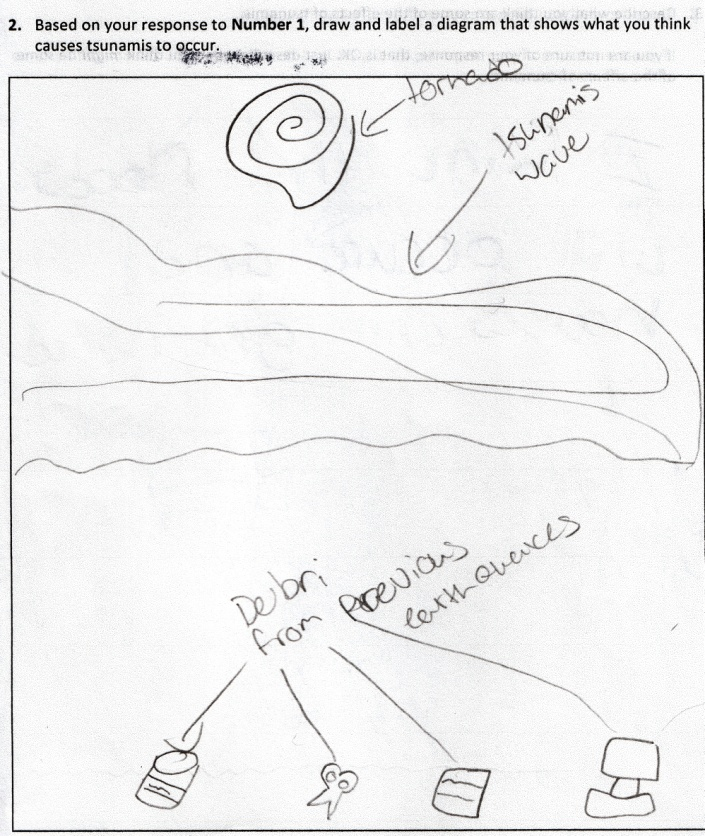 2. Based on your response to Number 1, draw and label a diagram that shows what you think
causes tsunamis to occur.
tornado
tsunamis
wave
Debri
from previous
earthquakes